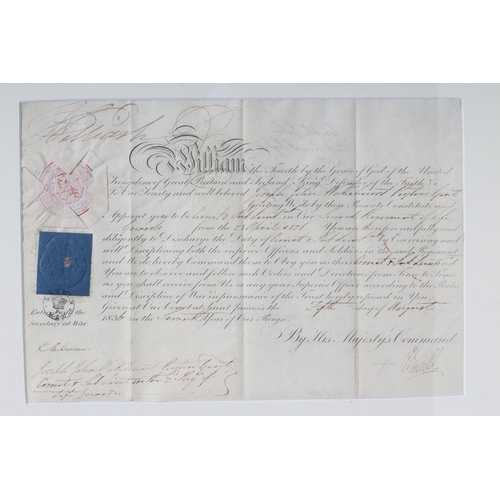 William R
William the Fourth by the Grace of God of the United
Kingdom of Great Britain and Ireland, King, Defender of the Faith &c
To Our Trusty and well beloved Joseph John Gent
Greeting We do by these Presents Constitute and
Appoint you to be Cornet & Sub Lieut in Our Second Regiment of Life
Guards from the 1836 You are therefore carefully and
diligently to Discharge the Duty of Cornet & Sub Lieut by Exercising and
well disciplining both the inferior Officers and Soldiers in that Regiment
and We do hereby Command them to Obey you as their Cornet & Sub Lieut and
You are to observe and follow such Orders and Directions from Time to Time
as you shall receive from Us or any your Superior Officer according to the Rules
and Discipline of War in pursuance of the Trust hereby reposed in You
Given at Our Court at Saint James's the Fifth day of August
1836 in the Seventh Year of Our Reign
By His Majesty's Command
Entered with the
Secretary at War
Joseph John Gent
Cornet & Sub Lieut in the 2d Reg of
Life Guards